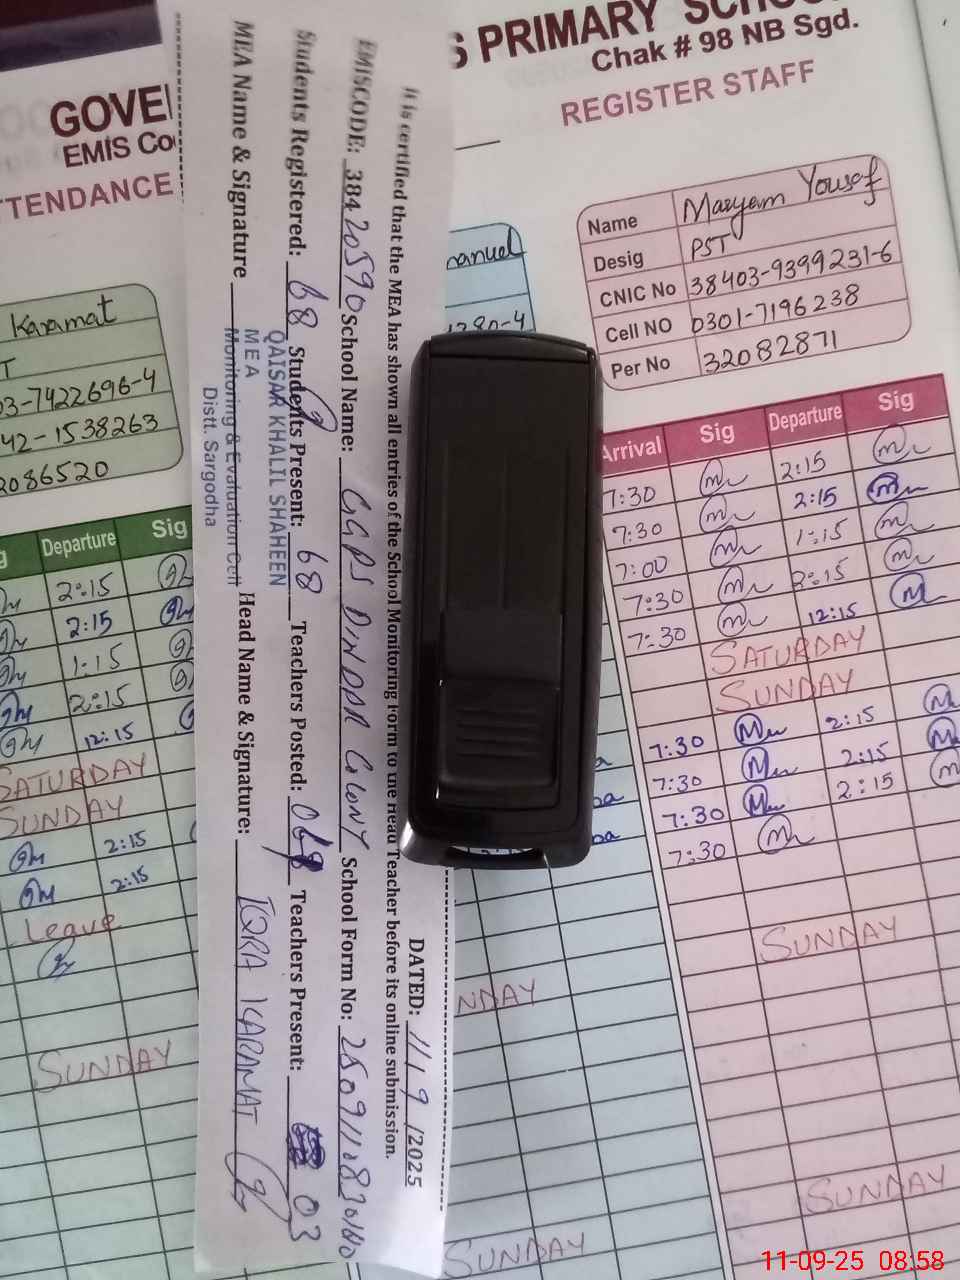 GOVE
EMIS Co
TTENDANCE
Karamat
T
03-7422696-4
42-1538263
2086520
Departure Sig
2:15
2:15
1:15
2:15
12:15
SATURDAY
SUNDAY
2:15
2:15
Leave
SUNDAY
It is certified that the MEA has shown all entries of the School Monitoring Form to the Head Teacher before its online submission.
DATED: 11/9/2025
EMISCODE: 38420590 School Name: GGPS DINDAR COLONY School Form No:
Students Registered: 68 Students Present: 68 Teachers Posted: 04 Teachers Present: 03
MEA Name & Signature Head Name & Signature: IQRA KARAMAT
QAISAR KHALIL SHAHEEN
MEA
Monitoring & Evaluation Cell
Distt. Sargodha
S PRIMARY SCHO
Chak # 98 NB Sgd.
REGISTER STAFF
anuel
1280-4
Name Maryam Yousaf
Desig PST
CNIC No 38403-9399231-6
Cell NO 0301-7196238
Per No 32082871
Arrival Sig Departure Sig
7:30 2:15
7:30 2:15
7:00 1:15
7:30 2:15
7:30 12:15
SATURDAY
SUNDAY
7:30 2:15
7:30 2:15
7:30 2:15
7:30
SUNDAY
NDAY
SUNDAY
SUNDAY
11-09-25 08:58